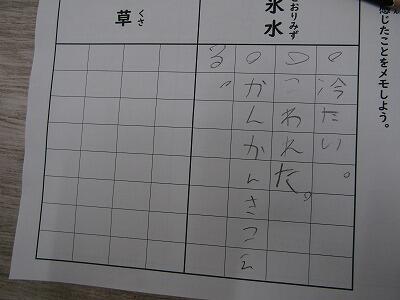 感じたことをメモしよう。
おりみず
氷水
○冷たい。
○こわれた。
○かんかんさつ
る。
くさ
草